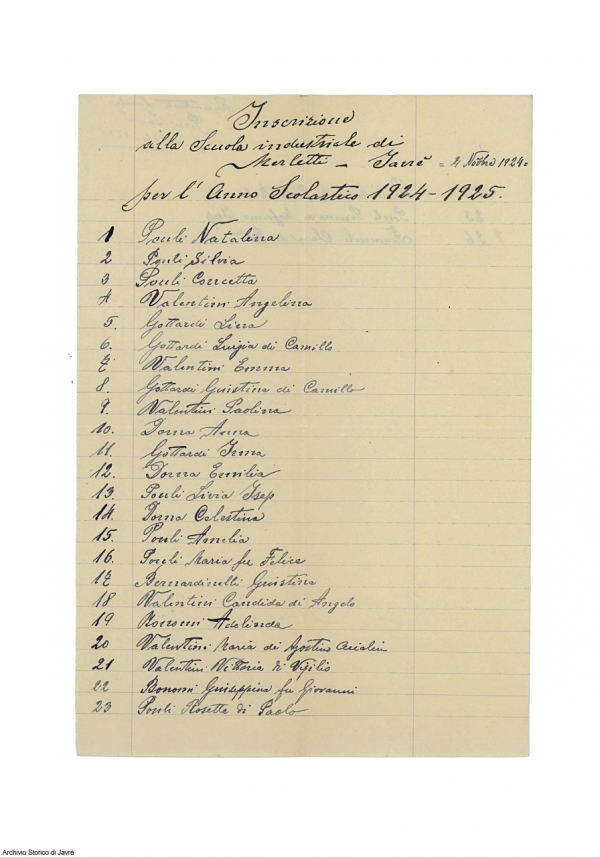 Inscrizione
alla Scuola industriale di
Merletti - Javrè = 2 Nvbre 1924 =
per l'Anno Scolastico 1924-1925.
1 Pouli Natalina
2 Pouli Silvia
3 Pouli Concetta
4 Valentini Angelina
5. Gottardi Lina
6. Gottardi Luigia di Camillo
7. Valentini Emma
8. Gottardi Giustina di Camillo
9. Valentini Paolina
10. Dorna Anna
11. Gottardi Irma
12. Dorna Emilia
13. Pouli Livia Isep
14. Dorna Celestina
15. Pouli Amelia
16. Pouli Maria fu Felice
17 Bernardinelli Giustina
18 Valentini Candida di Angelo
19 Adelinda
20 Valentini Maria di Agostino
21 Valentini Vittoria di Vigilio
22 Bonomi Guiseppina fu Giovanni
23 Pouli Rosetta di Paolo
Archivio Storico di Javrè